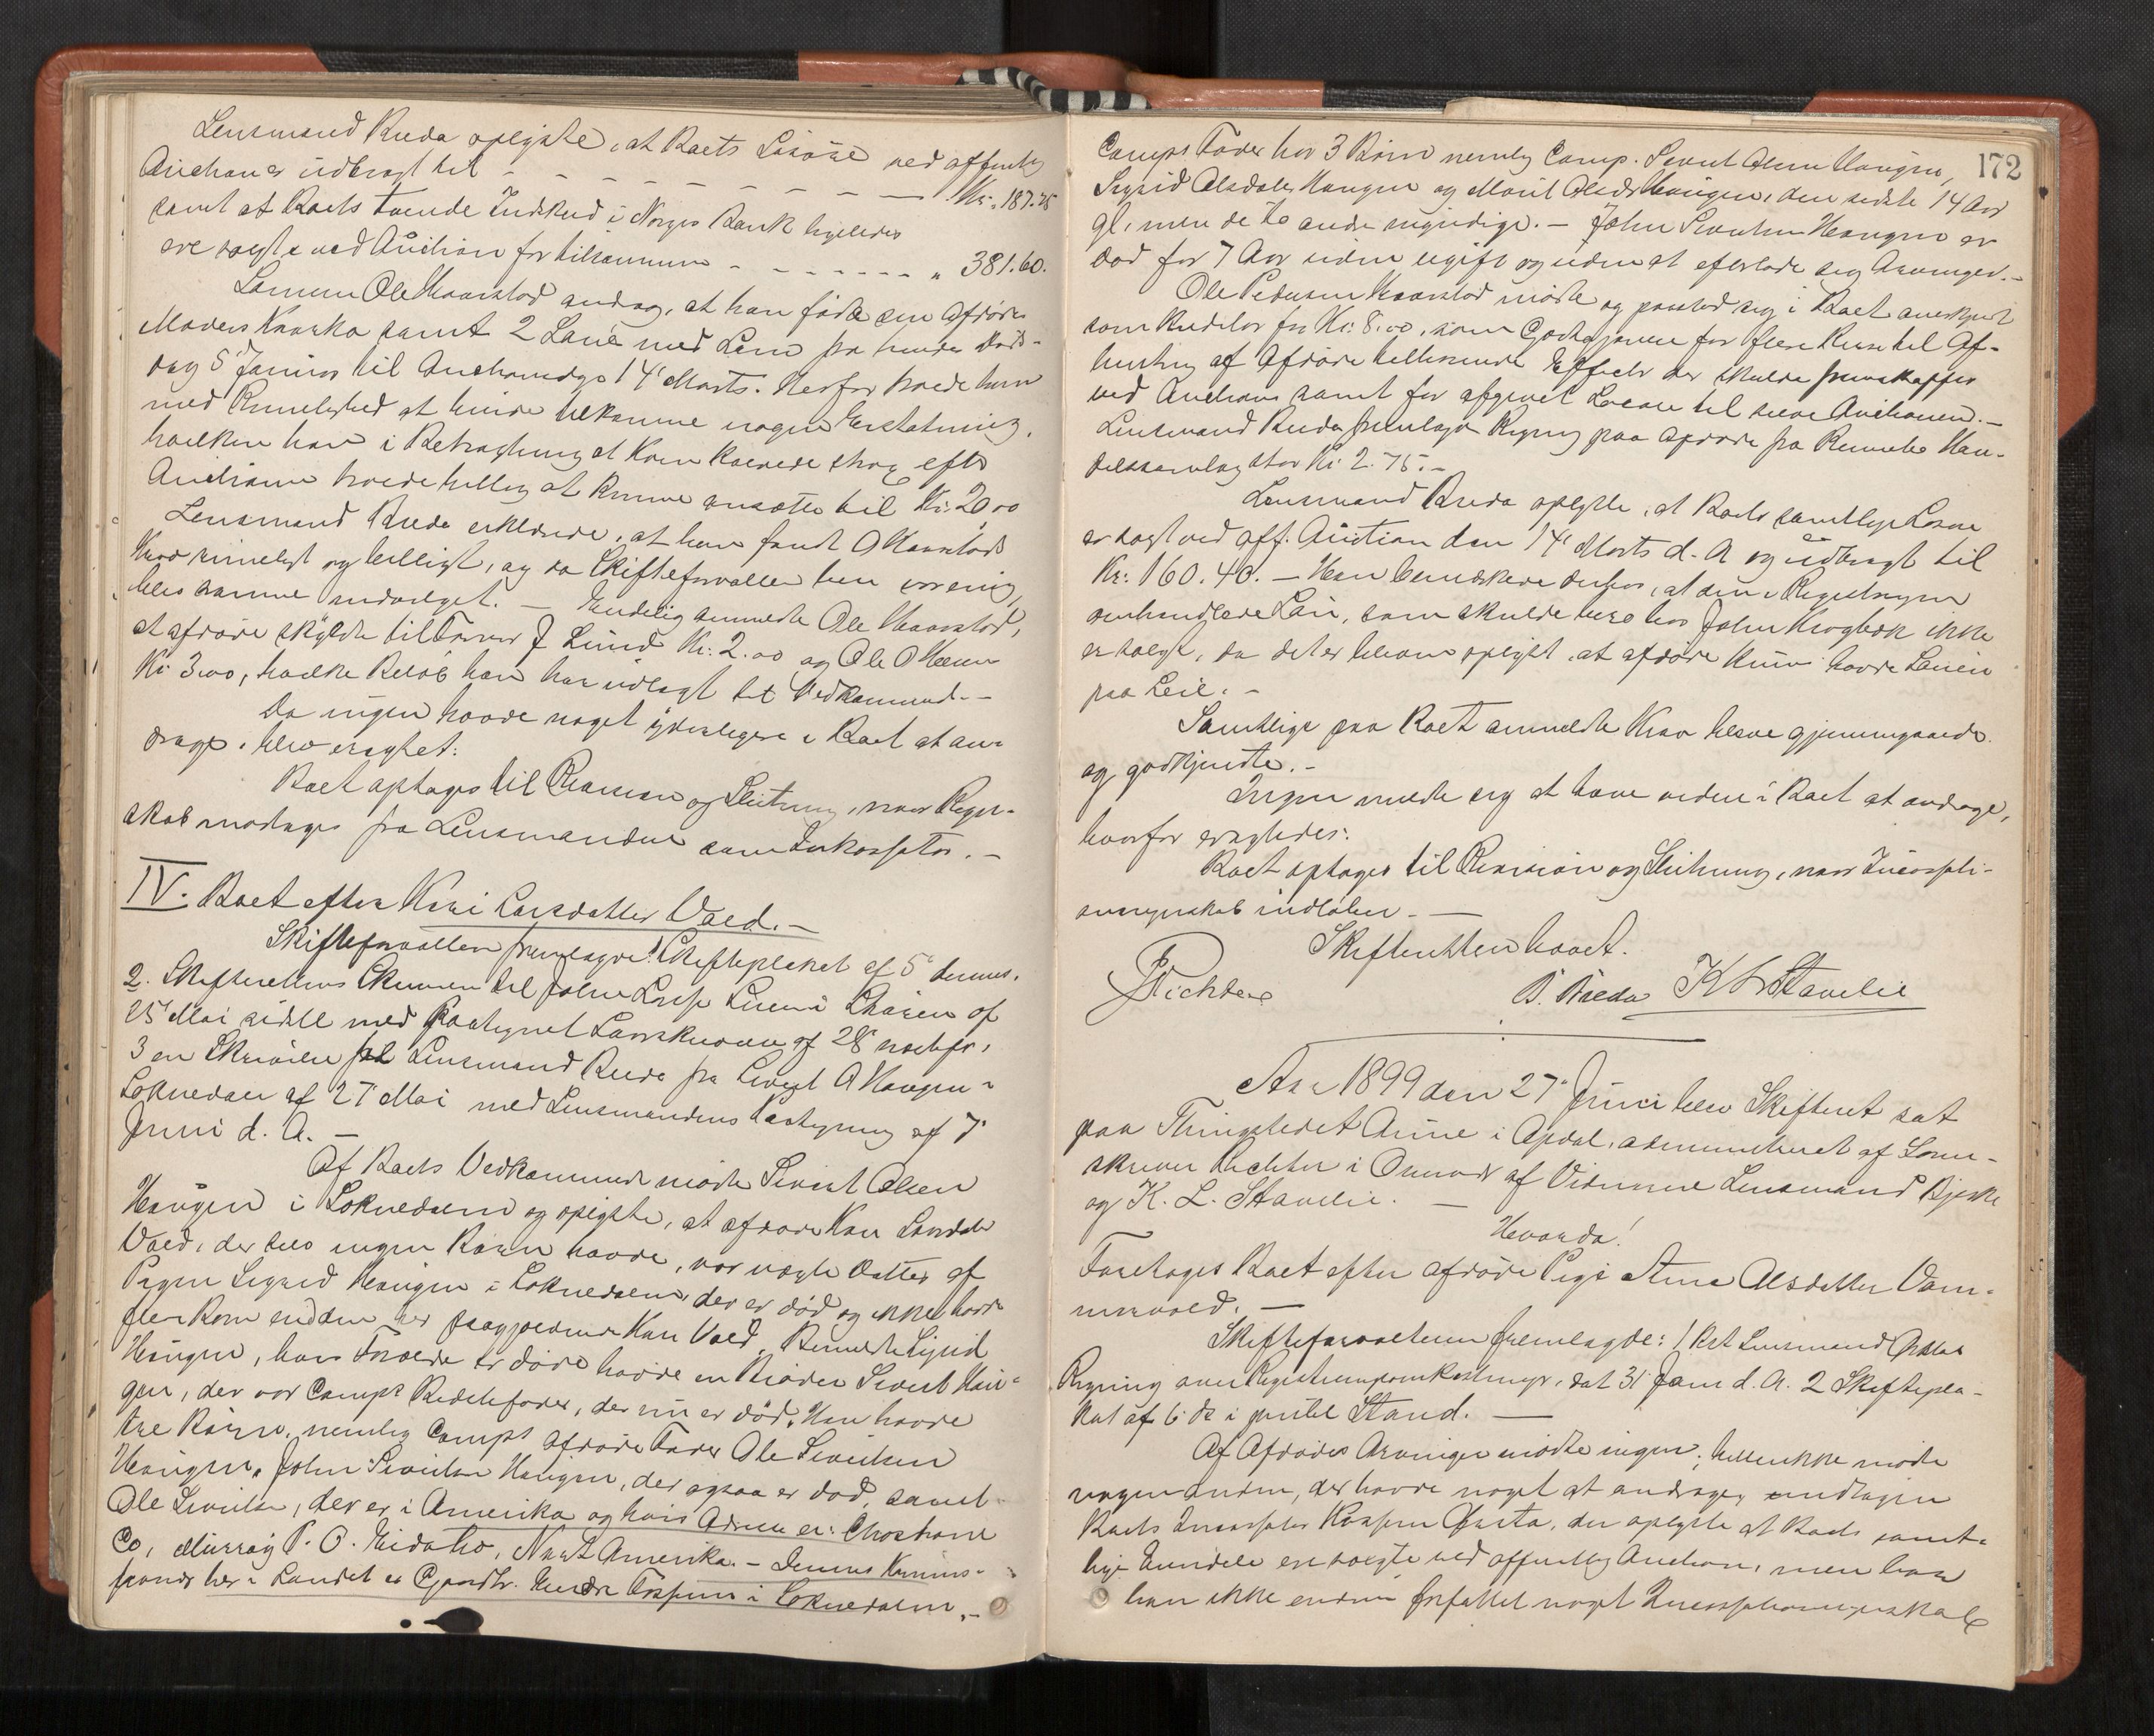 Lensmand Buda oplyste, at Boets Løsøre ved offentlig
Auction er udbragt til - - - - - - Kr. 187.75
samt at Boets tvende Indskud i Norges Bank ligeledes
ere solgte ved Auction for tilsammen - - - - - - " 381.60.
Ole Haarstad androg, at han fødte sin Afdøde
Moders Ko samt 2 med Lam fra hendes Døds-
dag 5' Januar til Auctionsdag 14' Marts. Herfor troede han
med Rimelighed at burde tilkomme nogen Erstatning,
hvilken han i Betragtning at Koen kalvede strax efter
Auctionen troede billig at kunne ansættes til Kr. 20.00
Lensmand Buda erklærede, at han fandt O Haarstads
Krav rimeligt og billigt, og da Skifteforvalteren var enig,
blev samme indvilget. — Endelig anmeldte Ole Haarstad,
at afdøde skyldte til J Lund Kr: 2.00 og Ole O
Kr 3.00, hvilke Beløb han har udlagt til Vedkommende.-
Da ingen havde noget yderligere i Boet at an-
drage, blev eragtet:
Boet optages til Revision og Slutning, naar Regn-
skab modtages fra Lensmanden som Inkassator. -
IV. Boet efter Kari Larsdatter Voed. -
Skifteforvalteren fremlagde: 1 Skifteplakat af 5' dennes.
2. Skifterettens Skrivelse til John af
25' Mai sidstl med paategnet Svarskrivelse af 28' næstefter,
3 en Skrivelse til Lensmand Buda fra Sivert O Haugen -
Soknedalen af 27' Mai med Lensmandens Paategning af 7'
Juni d. A. -
Af Boets Vedkommende mødte Sivert Olsen
Haugen i Soknedalen og oplyste, at afdøde Kari Larsdatter
Voed, der selv ingen Børn havde, var uægte Datter af
Pigen Sigrid Haugen i Soknedalen, der er død og ikke havde
flere Børn end den her paagjældende Kari Voed. Bemeldte Sigrid
Haugen, hvis Forældre er døde havde en Broder Sivert Hau-
gen, der var Comps Bedstefader, der nu er død. Han havde
tre Børn, nemlig Comps afdøde Fader Ole Sivertsen
Haugen, John Sivertsen Haugen, der ogsaa er død, samt
Ole Sivertsen, der er i Amerika og hvis Adresse er: Choshone
Co, Murray P. O. Eidaho, Nord Amerika. - Dennes Commis-
sionær her i Landet er Gaardbr. i Soknedalen. -
172
Comps Fader har 3 Børn nemlig Comp. Sivert Olsen Haugen,
Sigrid Olsdatter Haugen og Marit Olsdr Haugen, den sidste 14 Aar
gl, men de to andre myndige. - John Sivertsen Haugen er
død for 7 Aar siden ugift og uden at efterlade sig Arvinger. -
Ole Pedersen Haarstad mødte og paastod sig i Boet
som Kreditor for Kr: 8.00, som Godtgjørelse for flere Reiser til Af-
hentning af Afdøde tilhørende Effecter der skulde fremskaffes
ved Auctionen samt for afgivet Locale til selve Auctionen. -
Lensmand Buda fremlagde Regning paa Afdøde fra Rennebo Han-
delssamlag stor Kr 2.75. -
Lensmand Buda oplyste, at Boets samtlige Løsøre
er solgt ved off. Auction den 14' Marts d. A og udbragt til
Kr: 160.40. - Han bemærkede derhos, at den i Registreringen
omhandlede , som skulde bero hos John Krogbæk ikke
er solgt, da det er bleven oplyst, at afdøde kun havde
paa Leie. -
Samtlige paa Boet anmeldte Krav bleve gjennemgaaede
og godkjendte. -
Ingen meldte sig at have videre i Boet at andrage,
hvorfor eragtedes:
Boet optages til Revision og Slutning, naar Incassati-
onsregnskab indløber. —
Skifteretten hævet.
Richter B. Buda K L Stavelie
Aar 1899 den 27' Juni blev Skifteret sat
paa Thingstedet Aune i Opdal, administreret af Soren-
skriver Richter i Overvær af Vidnerne Lensmand Bjerke
og K. L. Stavelie. —
Hvorda!
Foretoges Boet efter afdøde Pige Ane Olsdatter Vam-
mervold. —
Skifteforvalteren fremlagde: 1 Lensmand
Regning over Registreringsomkostninger, dat 31' Janr d. A. 2 Skiftepla-
kat af 6' ds i Stand. —
Af Afdødes Arvinger mødte ingen; heller ikke mødte
nogen anden, der havde noget at andrage, undtagen
Boets Incassator , der oplyste at Boets samt-
lige Eiendele ere solgte ved offentlig Auction, men har
han ikke endnu forfattet noget Incassationsregnskab